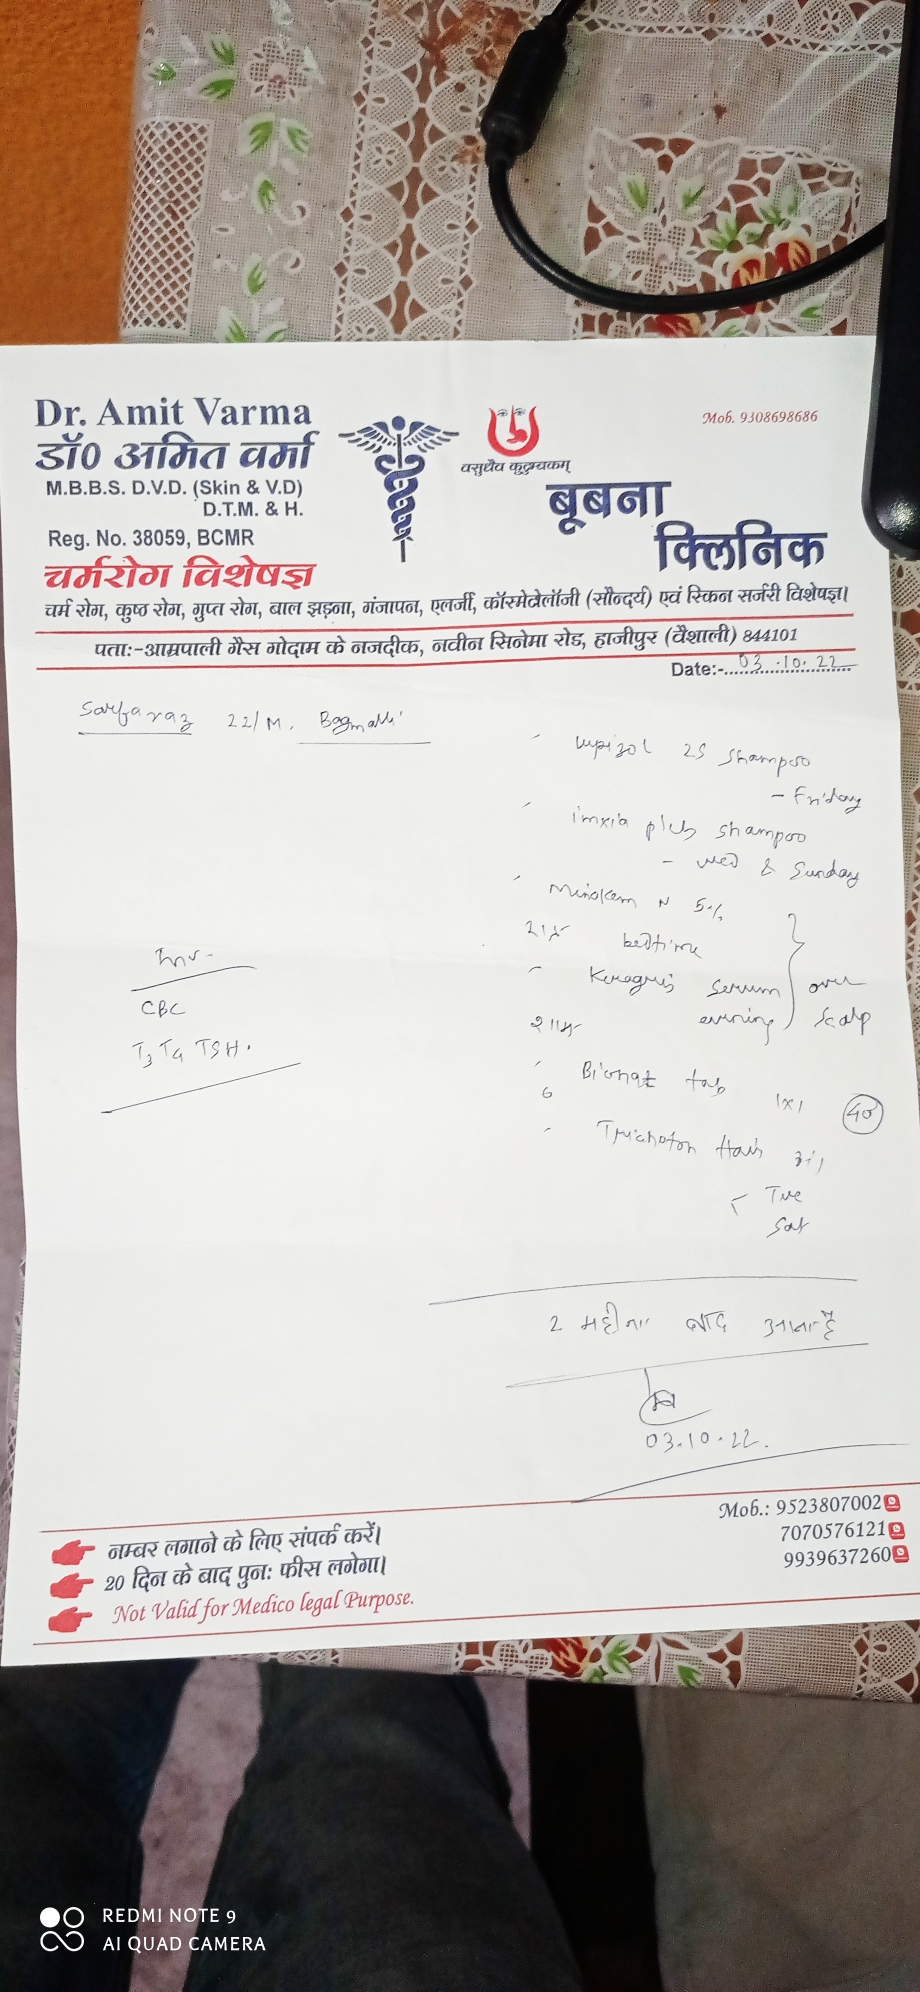 Dr. Amit Varma
डॉ0 अमित वर्मा
M.B.B.S. D.V.D. (Skin & V.D)
D.T.M. & H.
Reg. No. 38059, BCMR
चर्मरोग विशेषज्ञ
वसुधैव कुटुम्बकम्
Mob. 9308698686
बूबना
क्लिनिक
चर्म रोग, कुष्ठ रोग, गुप्त रोग, बाल झड़ना, गंजापन, एलर्जी, कॉस्मेटोलॉजी (सौन्दर्य) एवं स्किन सर्जरी विशेषज्ञ।
पता:-आम्रपाली गैस गोदाम के नजदीक, नवीन सिनेमा रोड, हाजीपुर (वैशाली) 844101
Date:- 03.10.22
Sarfaraz 22/M.
Inv-
CBC
T3 T4 TSH.
25 shampoo
- Friday
imxia plus shampoo
- wed & Sunday
N 5%
रात bedtime
serum over
शाम evening scalp
tab 1x1 40
Hair
Tue
Sat
2 महीना बाद आना है
03.10.22.
नम्बर लगाने के लिए संपर्क करें।
20 दिन के बाद पुन: फीस लगेगा।
Not Valid for Medico legal Purpose.
Mob.: 9523807002
7070576121
9939637260
REDMI NOTE 9
AI QUAD CAMERA